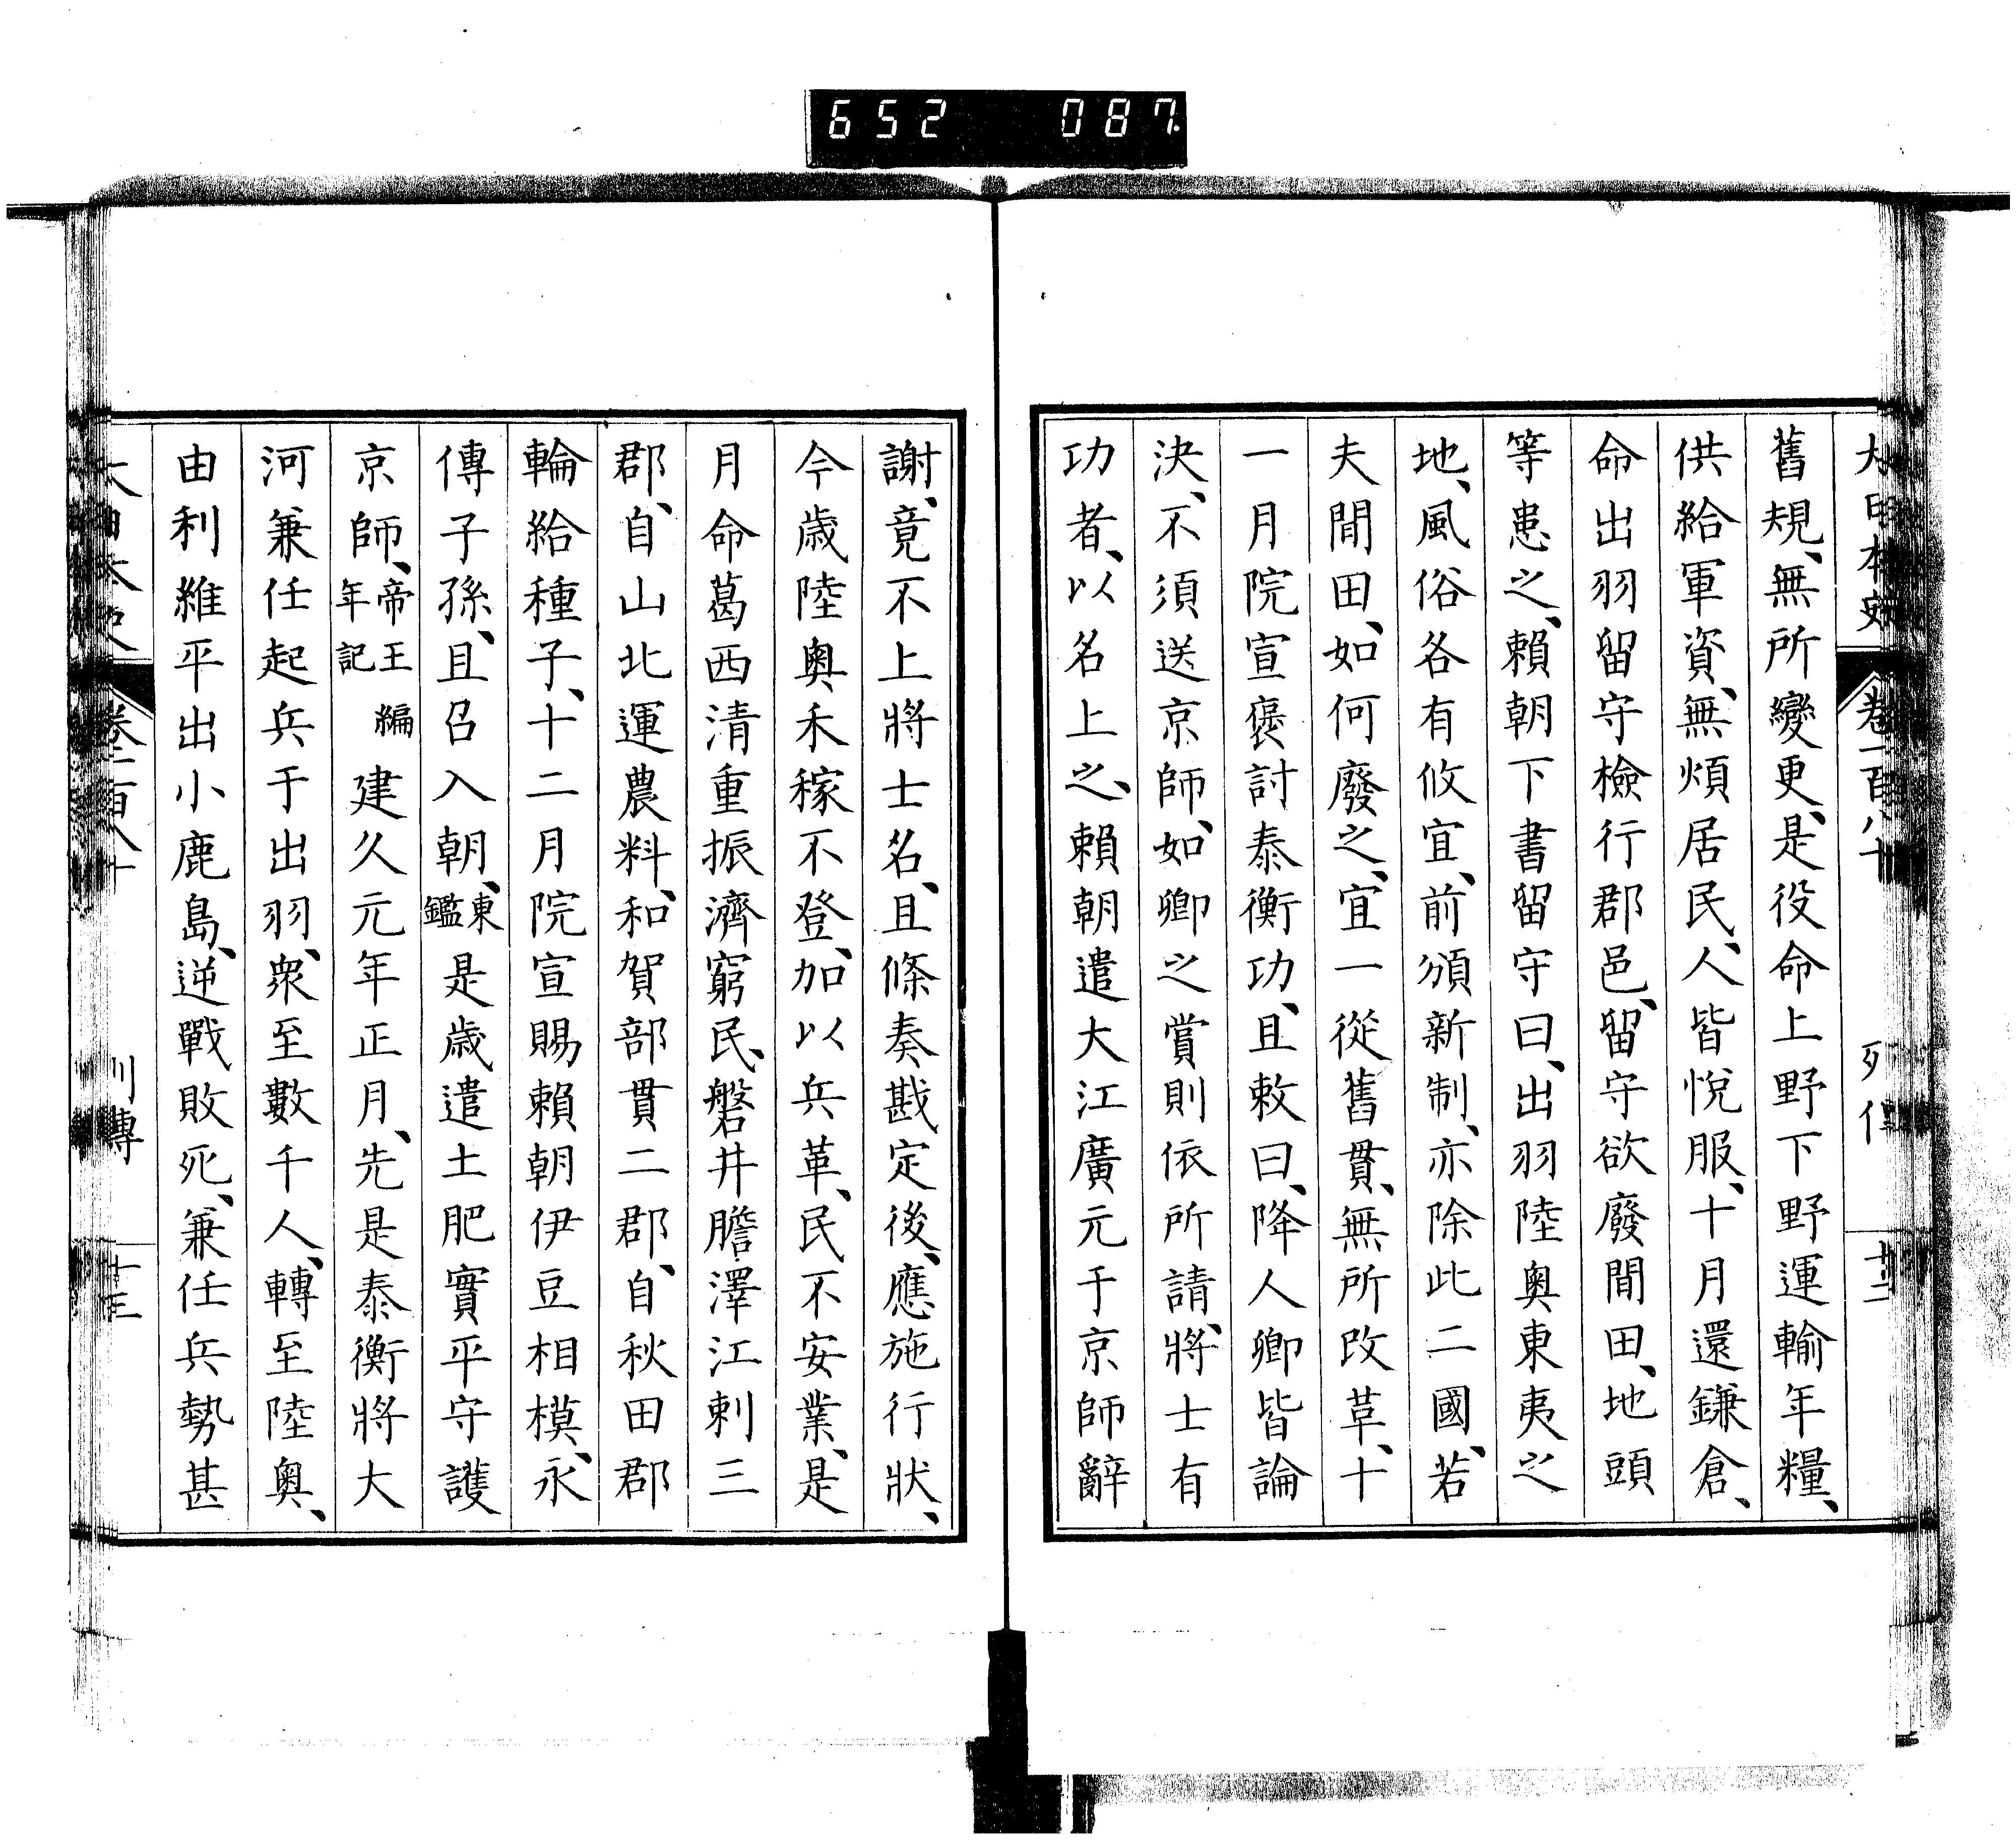 652 087
大日本史 卷一百八十 列傳 十二
舊規、無所變更、是役命上野下野運輸年糧、
供給軍資、無煩居民、人皆悅服、十月還鎌倉、
命出羽留守檢行郡邑、留守欲廢閒田、地頭
等患之、賴朝下書留守曰、出羽陸奧東夷之
地、風俗各有攸宜、前頒新制、亦除此二國、若
夫閒田、如何廢之、宜一從舊貫、無所改革、十
一月院宣褒討泰衡功、且敕曰、降人卿皆論
決、不須送京師、如卿之賞則依所請、將士有
功者、以名上之、賴朝遣大江廣元于京師辭
謝、竟不上將士名、且條奏戡定後、應施行狀、
今歲陸奧禾稼不登、加以兵革、民不安業、是
月命葛西清重振濟窮民、磐井膽澤江刺三
郡、自山北運農料、和賀部貫二郡、自秋田郡
輪給種子、十二月院宣賜賴朝伊豆相模、永
傳子孫、且召入朝、東鑑是歲遣土肥實平守護
京師、帝王編年記建久元年正月、先是泰衡將大
河兼任起兵于出羽、衆至數千人、轉至陸奧、
由利維平出小鹿島、逆戰敗死、兼任兵勢甚
大日本史 卷一百八十 列傳 十三